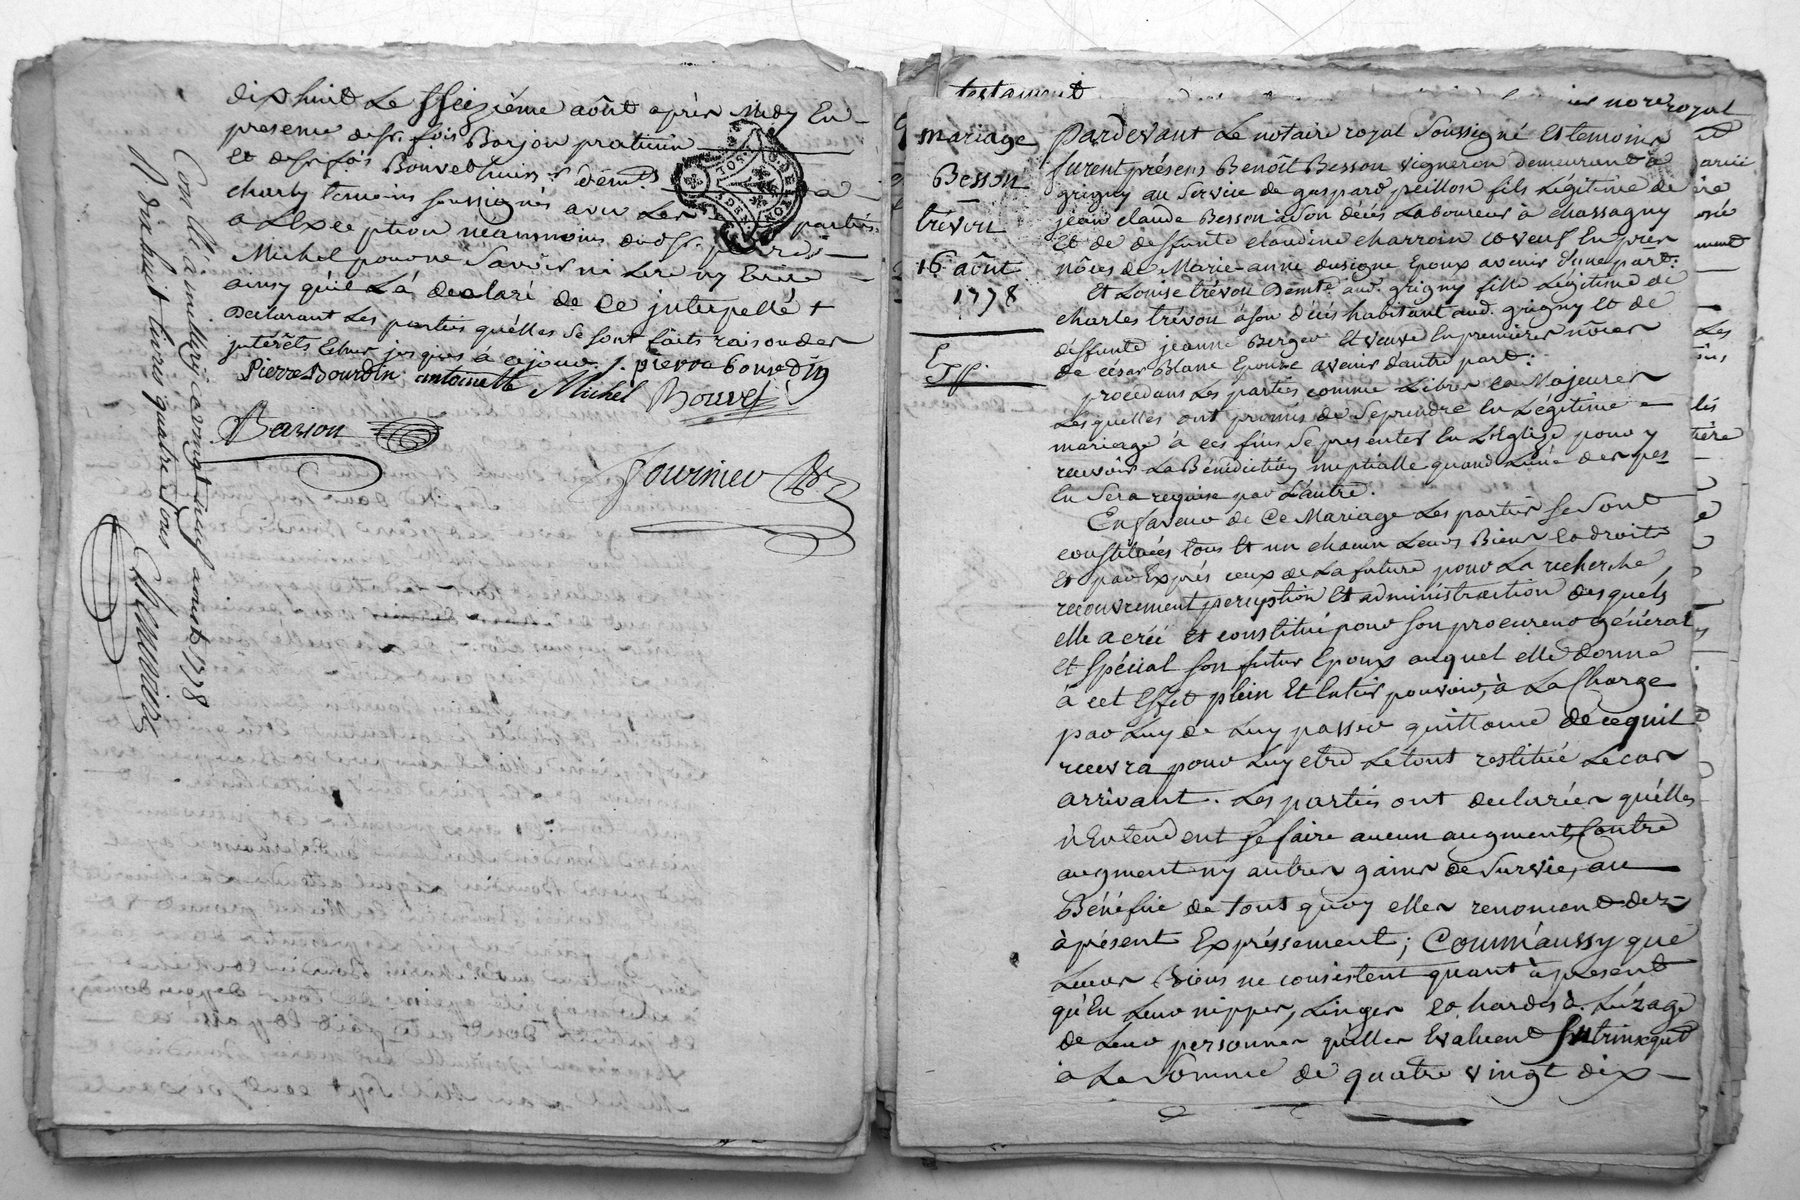 dix huit Le sseizième aôut après Midy En
presence de sr. fois Barjon praticien
Et de sr. fois Bouvet huissr. demts.
charly temoins soussignés avec Les parties
a L'Exception néanmoins dud. sr. pierre
Michel pour ne savoir ni Lire ny Ecrire
ainsy qu'il L'a déclaré de ce interpellé +
Declarant Les parties qu'elles se sont faits raison des
intérêts Echus jusques à ce jour /. pierre bourdin
Pierre Bourdin antoinette Michel Bouvet
Barjon
Fournier
Con lé à millery ce vingt neuf aoust 1778
R. dix huit livres quatre sous
testament
nore royal
mariage
Besson
trévon
16 aôut
1778
Pardevant Le notaire royal soussigné Et temoins
furent présens Benoît Besson vigneron demeurant à
grigny au service de gaspard peillon fils Légitime de
jean claude Besson à son décès Laboureur à chassagny
Et de deffunte claudine charroin Et veuf En pres
nôces de Marie-anne dusigne Epoux avenir d'une part:
Et Louise trévon demte. aud. grigny fille Légitime de
charles trévon à son décès habitant aud. grigny Et de
déffunte jeanne Berger Et veuve En premieres nôces
de césar Blanc Epouse avenir d'autre part:
procédans Les parties comme Libres Et Majeures
Lesquelles ont promis de se prendre En Légitime
mariage à ces fins se presenter En L'Eglise pour y
recevoir La Bénédiction nuptialle quand L'une des pes
En sera requise par L'autre.
En faveur de Ce Mariage Les parties se sont
constituées tous Et un chacun Leurs Biens Et droits
Et par Exprès ceux de La future pour La recherche,
recouvrement perception Et administration desquels
elle a créé Et constitué pour son procureur général
Et spécial son futur Epoux auquel elle donne
à cet Effet plein Et Entier pouvoir, à La Charge
par Luy de Luy passer quittance de ce quil
recevra pour Luy etre Le tout restitué Le cas
arrivant. Les parties ont declarées qu'elles
n'Entendent se faire aucun augment, Contre
augment ny autres gains de Survie, au
Bénéfice de tout quoy elles renoncent dez
àprésent Expréssement; Comm'aussy que
Leurs Biens ne consistent quant àpresent
qu'En Leurs nippes, Linges Et hardes à L'uzage
de Leurs personnes qu'elles Evaluent Intrinsequt.
à La Somme de quatre vingt dix